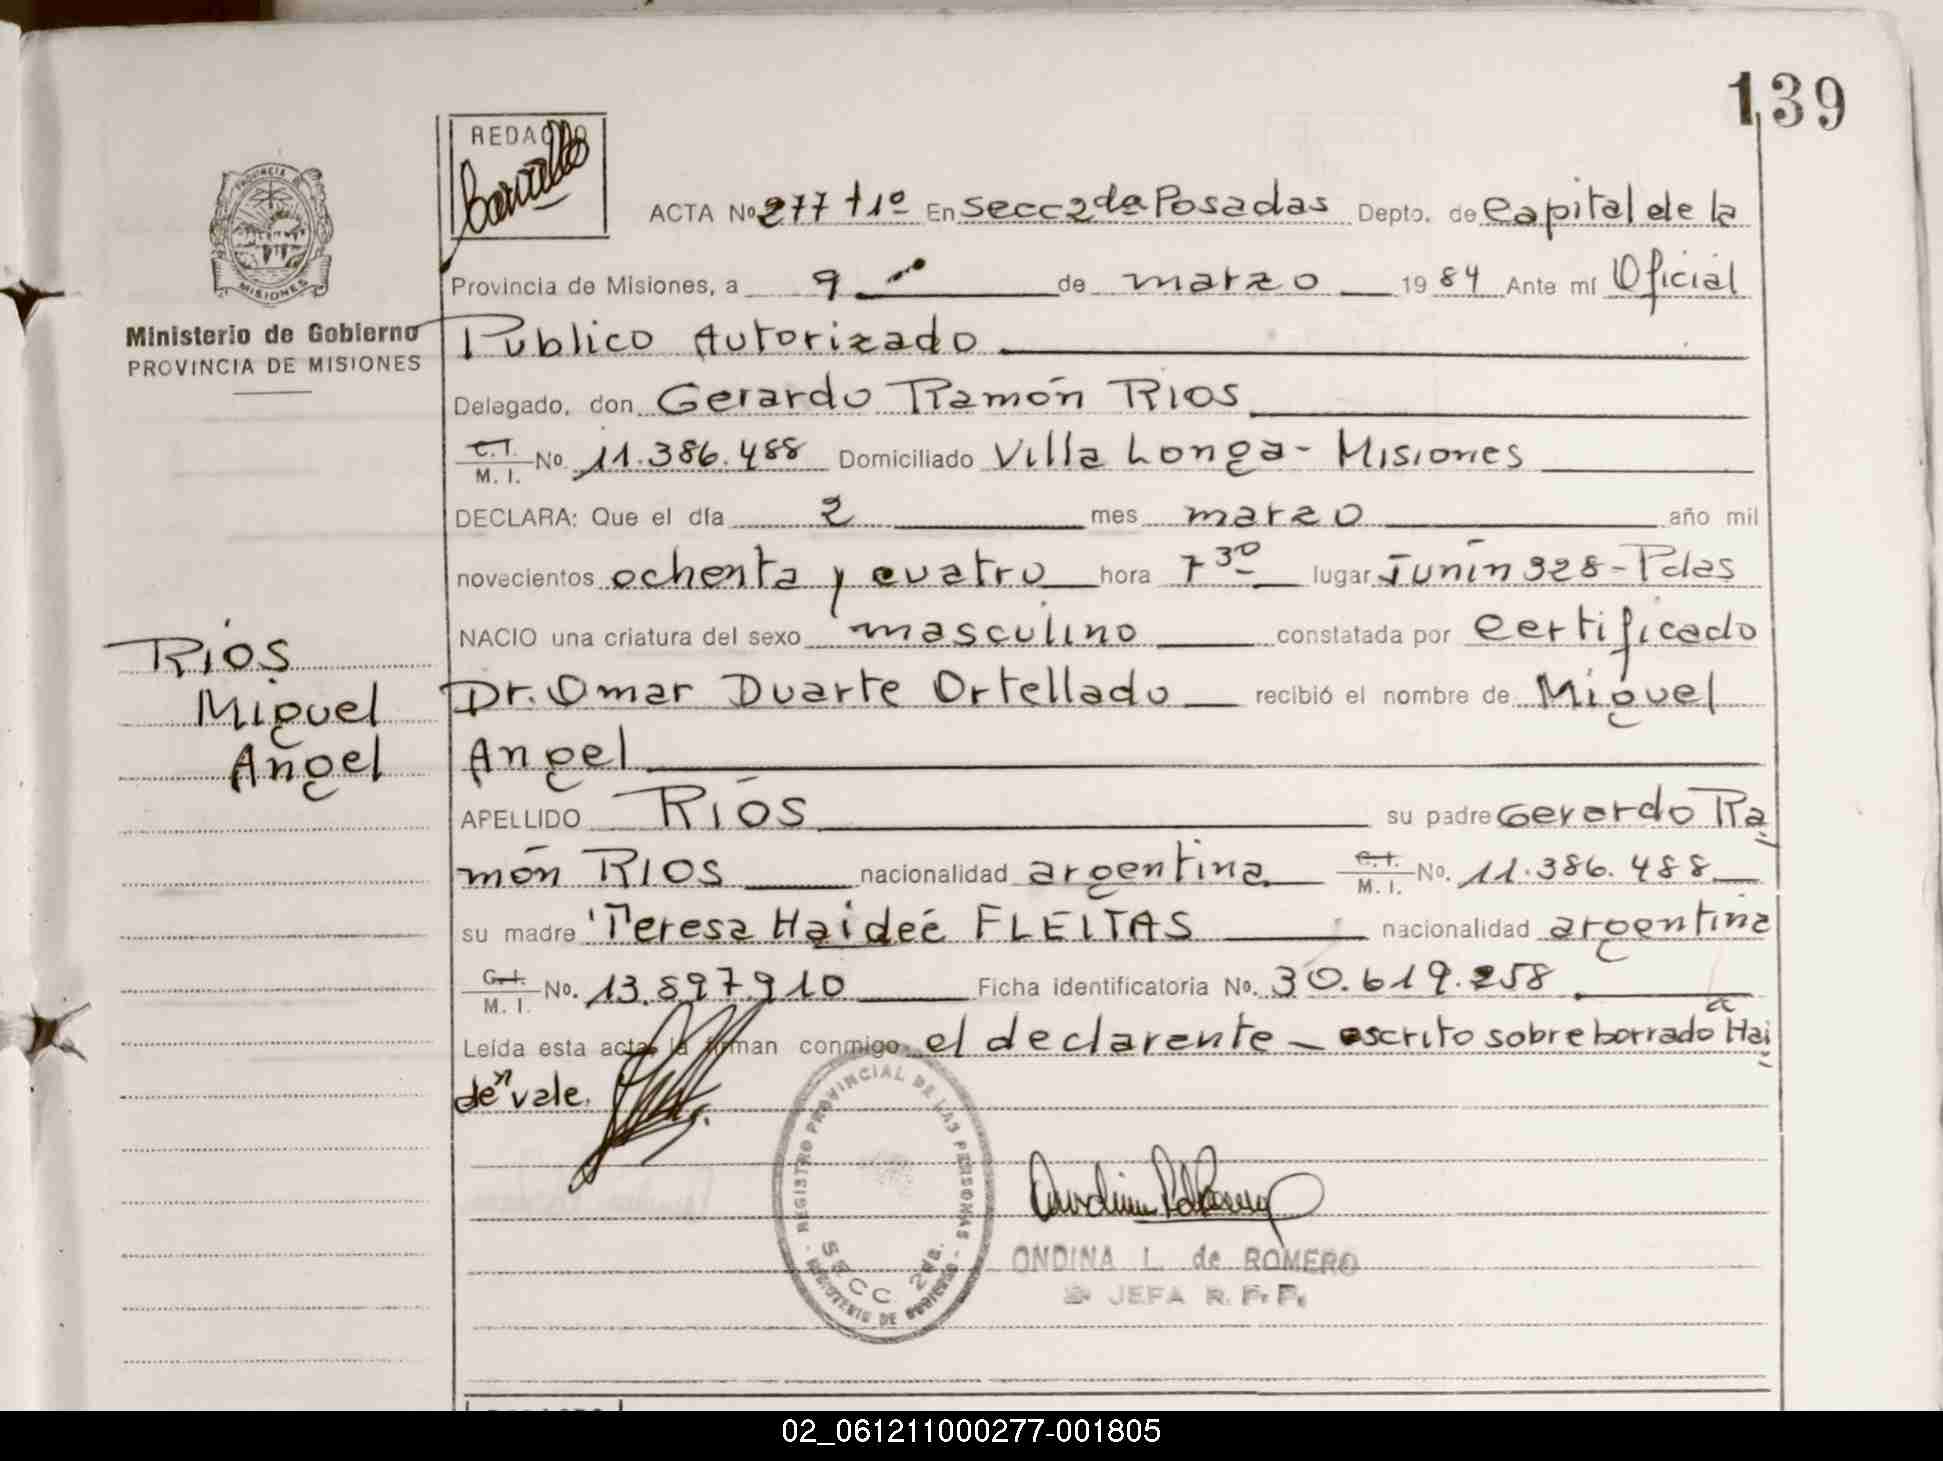 139
REDACTO
PROVINCIA DE
MISIONES
Ministerio de Gobierno
PROVINCIA DE MISIONES
ACTA No 277 t1º En secc 2da Posadas Depto. de Capital de la
Provincia de Misiones, a 9 de marzo 1984 Ante mí Oficial
Publico Autorizado
Delegado, don Gerardo Ramón RIOS
C.I. M. I. No. 11.386.488 Domiciliado Villa Longa - Misiones
DECLARA: Que el día 2 mes marzo año mil
novecientos ochenta y cuatro hora 7 30 lugar Junín 328 - Pdas
NACIO una criatura del sexo masculino constatada por certificado
Dr. Omar Duarte Ortellado recibió el nombre de Miguel
Angel
APELLIDO RÍOS su padre Gerardo Ra
món RIOS nacionalidad argentina C.I. M. I. No. 11.386.488
su madre Teresa Haideé FLEITAS nacionalidad argentina
C.I. M. I. No. 13.897.910 Ficha identificatoria No. 30.619.258
Leída esta acta, la firman conmigo el declarente - escrito sobre borrado "Hai
dé" vale.
Ríos
Miguel
Angel
REGISTRO PROVINCIAL DE LAS PERSONAS
SECC. 2da.
MINISTERIO DE GOBIERNO
ONDINA L. de ROMERO
JEFA R. P. P.
02_061211000277-001805